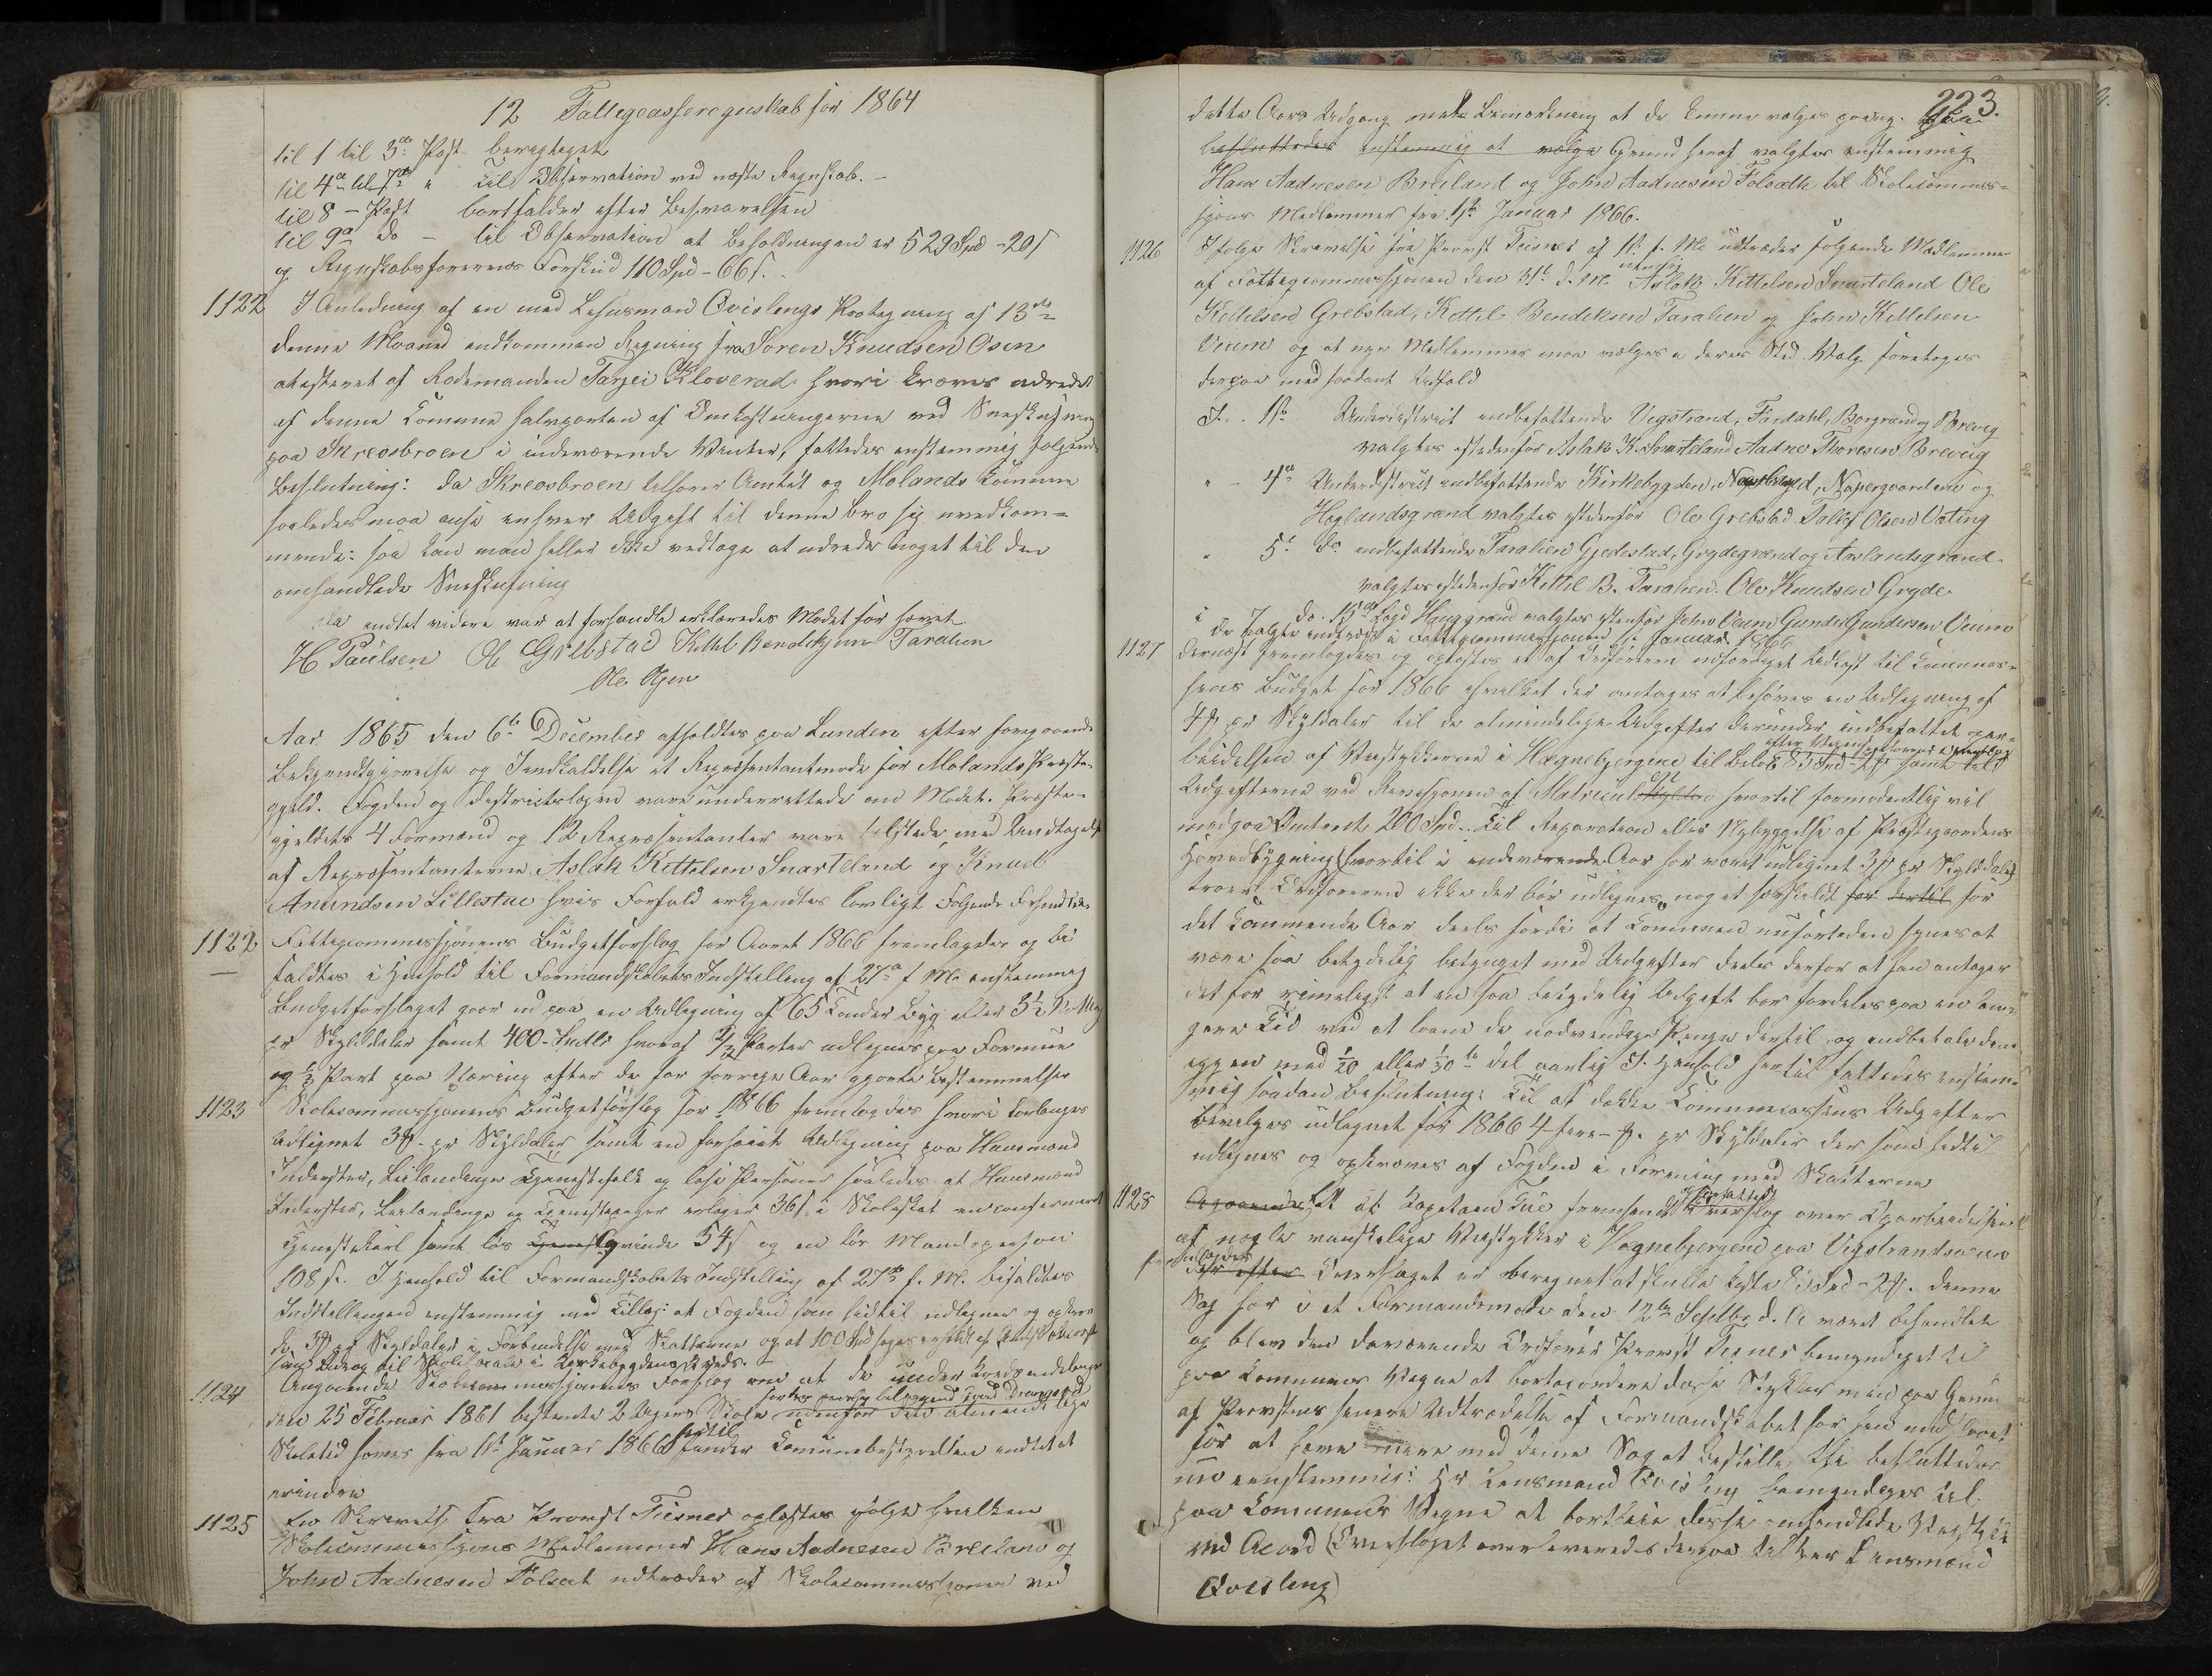 12 Fattigcasseregnskab for 1864
til 1 til 3de Post beregtiget
til 4de til 7de " til Observation ved næste Regnskab. -
til 8 - Post bortfalder efter Besvarelsen
til 9de do - til Observation at Beholdningen er 529 Spd - 20 s
og Regnskabsførerens Forskud 110 Spd - 66 s.
1122 I Anledning af en med Lehnsmand Qvislings Paategning af 13de
denne Maaned indkommen Regning fra Søren Knudsen Osen
atesteret af Rodemanden Tarjei Kloverød hvori kræves udredet
af denne Comune halvparten af Omkostningerne ved Sneskufning
paa Skreosbroen i indeværende Vinter, fattedes enstemmig følgende
Beslutning: da Skreosbroen tilhører Amtet og Molands Comune
saaledes maa anse enhver Udgift til denne Bro sig uvedkom-
mende: saa kan man heller ikke vedtage at udrede noget til den
omhandlede Sneskufning
da indtet videre var at forhandle erklæredes Mødet for hævet
H Paulsen Ole Grebstad Kittel Bendiksen Taralien
Ole Osen
Aar 1865 den 6te December afholdtes paa Lunden efter forgaaende
Bekjendtgjørelse og Indkaldelse et Repræsentantmøde for Molands Præste-
gjeld. Fogden og Districtslægen vare underrettede om Mødet. Præste-
gjeldets 4 Formænd og 12 Repræsentanter vare tilstede, med Undtagelse
af Repræsentanterne Aslak Kittelsen Snarteland og Knud
Anundsen Lillestue hvis Forfald erkjendtes lovligt Følgende
1122 Fattigcommissjonens Budgetforslag for Aaret 1866 fremlagdes og bi
faldtes i Henhold til Formandskabets Indstilling af 27de f. M. enstemmig
Budgetforslaget gaar ud paa en Udligning af 65 Tønder Byg eller 3½
pr Skylddaler samt 400 hvoraf 2/3 Parter udlignes paa Formue
og 1/3 Part paa Næring efter de for forrige Aar gjorte Bestemmelser
1123 Skolecommissjonens Budgetforslag for 1866 fremlagdes hvori forlanges
Udlignet 3 s pr Skylddaler samt en forhøiet Udligning paa Huusmænd
Inderster, Leilændinge Tjenestefolk og løse Personer saaledes at Huusmænd
Inderster, Leilændinge og Tjenestepiger erlægger 36 s i Skoleskat en confirmeret
Tjenestekarl samt løs Qvinde 54 s og en løs Mandsperson
108 s. I Henhold til Formandskabets Indstilling af 27de f. M. bifaldtes
Indstillingen enstemmig med Tillæg: at Fogden som hidtil udligner og opkræver
de 3 s pr Skylddaler i Forbindelse med Skatterne og at 100 Spd søges erholdt af Amtskolecassen
som Bidrag til Skolelocale i Kirkebygdens Kreds. -
1124 Angaaende Skolecommissjonens Forslag om at de under
den 25 Februar 1861 bestemte 2 Ugers Skole udenfor den almindelige
Skoletid hæves fra 1ste Januar 1866 hertil fandt Comunebestyrelsen indtet at
erindre
1125 En Skrivelse fra Provst Tisner oplæstes ifølge hvilken
Skolecommissjons Medlemmer Hans Aadnesen Breiland og
John Aadnesen Følsæt udtræder af Skolecommissjonen ved
223.
dette Aars Udgang med Bemærkning at de kunne vælges paany.
besluttedes enstemmig at vælge Grund heraf valgtes enstemmig
Hans Aadnesen Breiland og John Aadnesen Følsæth til Skolecommis-
sjons Medlemmer fra 1ste Januar 1866.
1126 Ifølge Skrivelse fra Provst Tisner af 1ste f. M. udtræder følgende Medlemmer
af Fattigcommissjonen den 31te d. M. nemlig Aslak Kittelsen Snarteland Ole
Kittelsen Grebstad, Kittel Bendiksen Taralien og John Kittelsen
Veum og at nye Medlemmer maa vælges i deres Sted. Valg foretoges
derpaa med saadant Udfald
I. 1ste Underdistrict indbefattende Vigstrand, Fardahl, Borgrænd og Brevig
valgtes istedenfor Aslak K. Snarteland Aadne Thoresen Brevig
" - 4de Underdistrict indbefattende Kirkebygden, , Napergaardene og
Høglandsgrænd valgtes istedenfor Ole Grebstad Tallef Olsen Væting
" 5te do indbefattende Taralien Gjedestad, Grydegrænd og Aaslandsgrænd.
valgtes istedenfor Kittel B. Taralien. Ole Knudsen Gryde
i 7 do. Haugrænd valgtes istenfor John Veum Gunder Gundersen Veum
De Valgte indtræde i Fattigcommissjonen 1ste Januar 1866
1127 Dernæst fremlagdes og oplæstes et af Ordføreren udfærdiget Udkast til Comunecas-
sens Budget for 1866 ifølge hvilket der antages at behøves en Udligning af
4 s pr Skylddaler til de almindelige Udgifter derunder indbefattet opar-
beidelsen af Veistykkerne i Hægnebjergene til Beløb 83 Spd 2 samt til
Udgifterne ved Revisjonen af Matriculskylden hvortil formodentlig vil
medgaa Omtrent 200 Spd. Til Reparation eller Nybyggelse af Præstegaardens
Hovedbygning (hvortil i indeværende Aar har været udlignet 3 s pr Skylddaler)
troer Ordføreren ikke der bør udlignes noget særskildt for dertil for
det kommende Aar deels fordi at Comunen nuførtiden synes at
være saa betydelig betynget med Udgifter deels derfor at han antager
det for rimeligst at en saa betydelig Udgift bør fordeles paa en læn-
gere Tid ved at laane de nødvendige Penge dertil og indbetale dem
igjen med 1/20 eller 1/30te del aarlig I. Henhold hertil fattedes enstem-
mig saadan Beslutning: Til at dække Communecassens Udgifter
bevilges udlignet for 1866 4 - fire - s. pr Skylddaler der som hidtil
udlignes og opkræves af Fogden i Forening med Skatterne
1128 Angaaende Et af Kapitain Tue fremsendt Overslag over Oparbeidelsen
af nogle vanskelige Veistykker i Hægnebjergene paa Vigstrandsveien
fremlagdes Overslaget er beregnet at skulle koste 83 Spd - 2 s. denne
Sag har i et Formandsmøde den 12te Septbr d. A været behandlet
og blev den daværende Ordfører Provst Tisner bemyndiget til
paa Comunens Vegne at bortacordere disse Stykker men paa Grund
af Provstens senere Udtrædelse af Formandskabet har han
for at have mere med denne Sag at bestille, thi besluttedes
nu eenstemmig: Hr Lensmand Qvisling bemyndiges til
paa Comunens Vegne at bortleie disse omhandlede Veistykker
ved Acord (Overslaget overleveredes derpaa til Herr Lensmand
Qvisling)